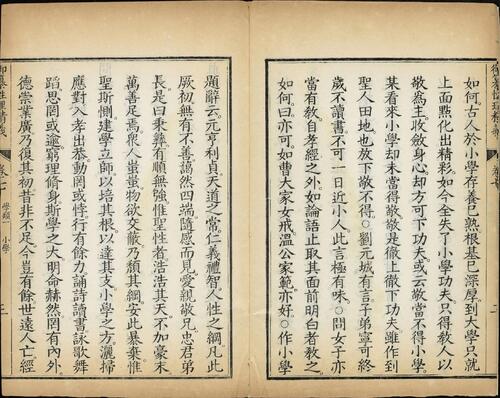 如何。古人於小學存養已熟。根基已深厚。到大學只就
上面㸃化出精彩。如今全失了小學功夫。只得教人以
敬為主。收斂身心。却方可下功夫。或云敬當不得小學。
某看來小學却未當得敬。敬是徹上徹下功夫。雖作到
聖人田地。也放下敬不得。○劉元城有言。子弟寧可終
歲不讀書。不可一日近小人。此言極有味。○問女子亦
當有教。自孝經之外。如論語止取其面前明白者教之
如何。曰亦可。如曹大家女戒。溫公家範亦好。○作小學
題辭云。元亨利貞。天道之常。仁義禮智。人性之綱。凡此
厥初。無有不善。藹然四端。隨感而見。愛親敬兄。忠君弟
長。是曰秉彝。有順無強。惟聖性者。浩浩其天。不加毫末。
萬善足焉。衆人蚩蚩。物欲交蔽。乃頽其綱。安此暴棄。惟
聖斯惻。建學立師。以培其根。以達其支。小學之方。灑掃
應對。入孝出恭。動罔或悖。行有餘力。誦詩讀書。詠歌舞
蹈。思罔或逾。窮理修身。斯學之大。明命赫然。罔有內外。
德崇業廣。乃復其初。昔非不足。今豈有餘。世遠人亡。經
卷七
學類一
小學
三